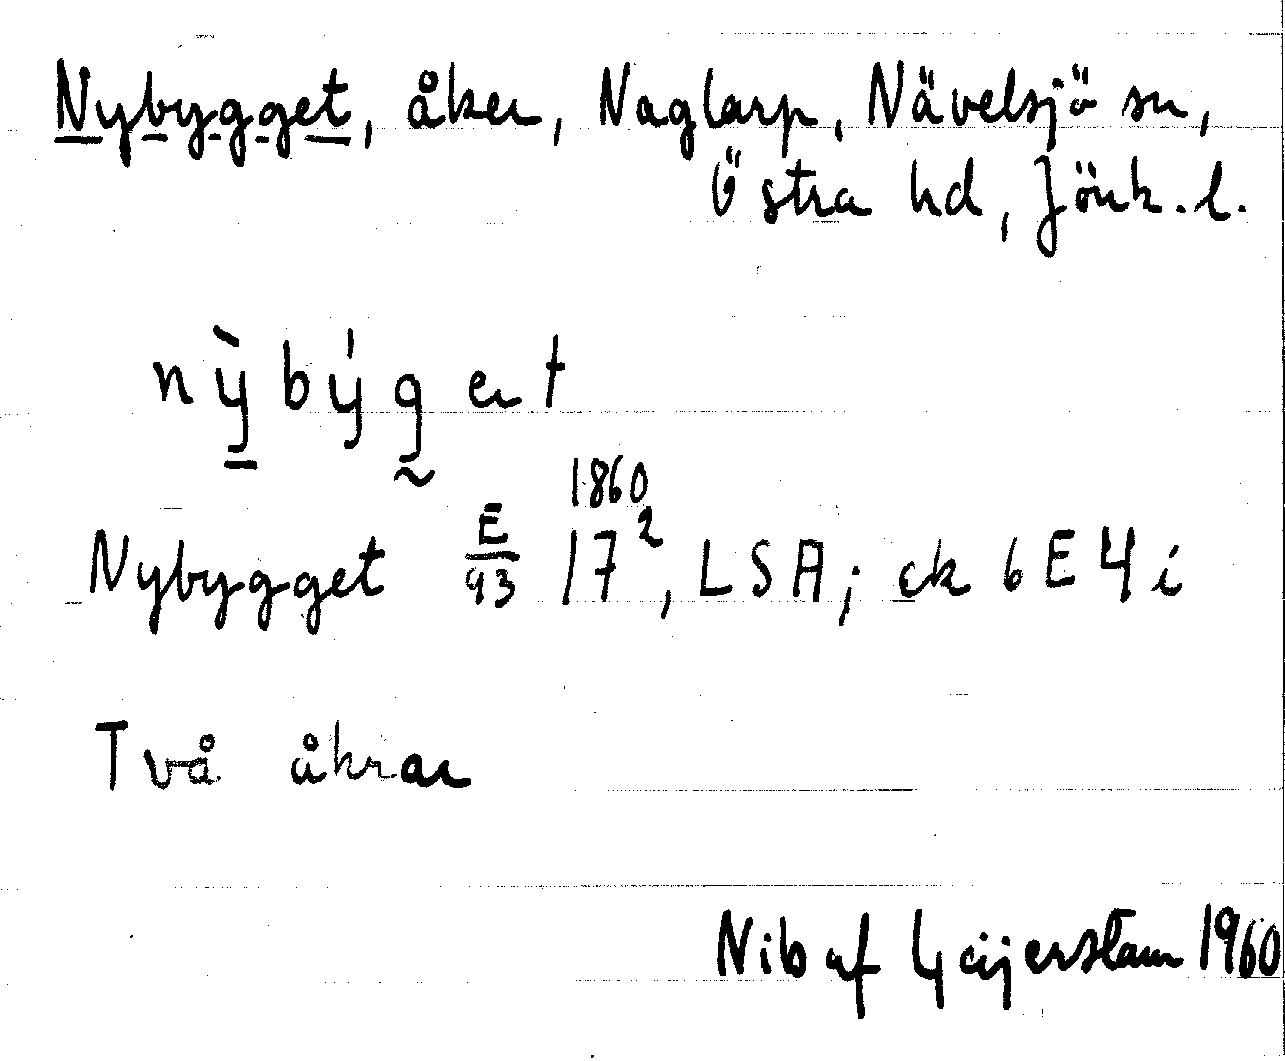 Nybygget, åker, Naglarp, Nävelsjö sn,
Östra hd, Jönk. l.
nỳ̱býg̰et
1860
Nybygget E/93 17², LSA; ek 6E4i
Två åkrar
Nib af Geijerstam 1960